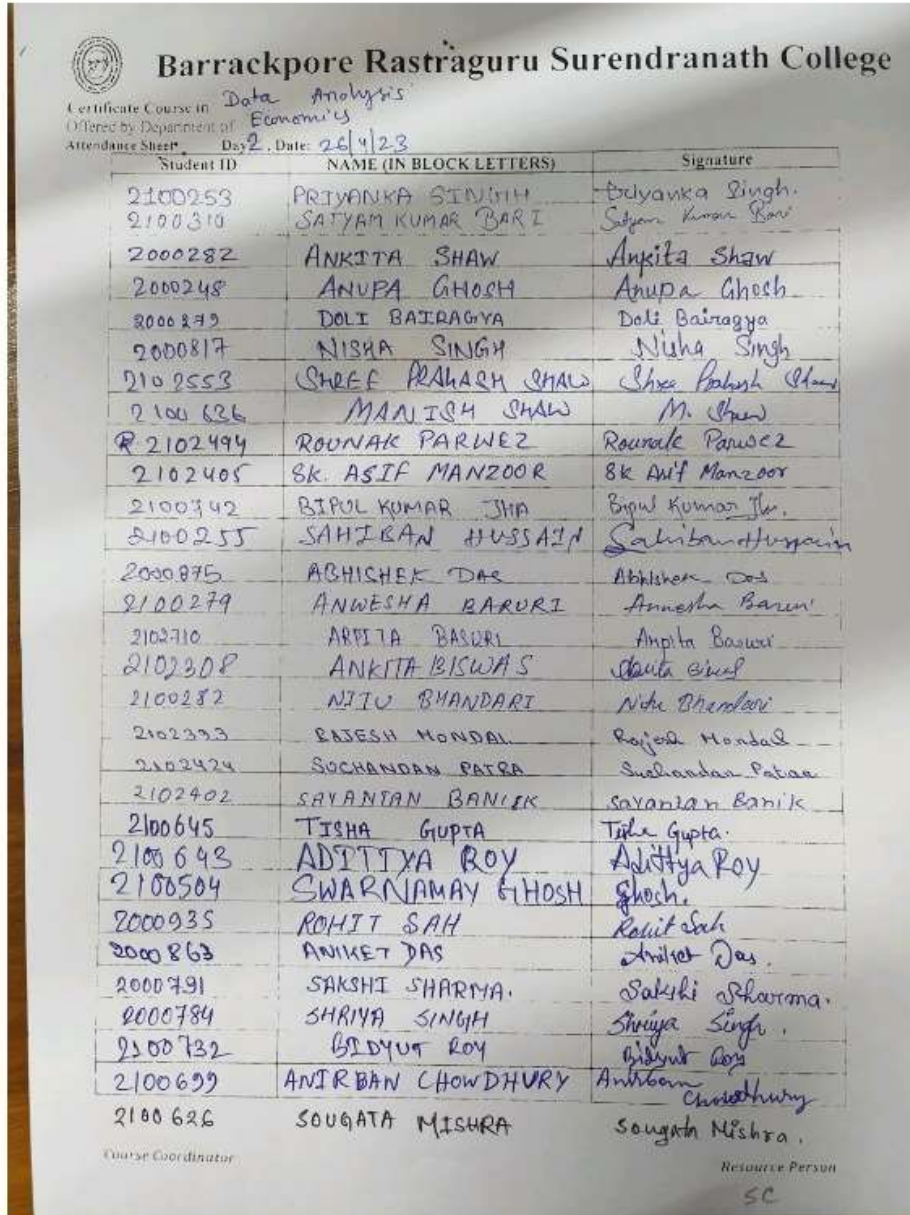 Barrackpore Rastraguru Surendranath College
Certificate Course in Data Analysis
Offered by Department of Economics
Attendance Sheet Day 2, Date: 26/4/23
Student ID NAME (IN BLOCK LETTERS) Signature
2100253 PRIYANKA SINGH Priyanka Singh.
2100310 SATYAM KUMAR BARI Satyam Kumar Bari
2000282 ANKITA SHAW Ankita Shaw
2000248 ANUPA GHOSH Anupa Ghosh
2000279 DOLI BAIRAGYA Doli Bairagya
2000817 NISHA SINGH Nisha Singh
2102553 SHREE PRAKASH SHAW Shree Prakash Shaw
2100626 MANISH SHAW M. Shaw
2102494 ROUNAK PARWEZ Rounak Parwez
2102405 SK. ASIF MANZOOR SK Asif Manzoor
2100342 BIPUL KUMAR JHA Bipul Kumar Jha.
2100255 SAHIBAN HUSSAIN Sahiban Hussain
2000875 ABHISHEK DAS Abhishek Das
2100279 ANWESHA BARURI Anwesha Baruri
2102710 ARPITA BASURI Arpita Basuri
2102308 ANKITA BISWAS
2100282 NITU BHANDARI Nitu Bhandari
2102393 RAJESH MONDAL Rajesh Mondal
2102424 SUCHANDAN PATRA Suchandan Patraa
2102402 SAYANTAN BANIIK Sayantan Banik
2100645 TISHA GUPTA Tisha Gupta.
2100643 ADITTYA ROY Adittya Roy
2100504 SWARNAMAY GHOSH Ghosh.
2000935 ROHIT SAH Rohit Sah
2000863 ANIKET DAS Aniket Das.
2000791 SAKSHI SHARMA. Sakshi Sharma.
2000784 SHRIYA SINGH Shriya Singh.
2100732 BIDYUT ROY Bidyut Roy
2100699 ANIRBAN CHOWDHURY Anirban Chowdhury
2100626 SOUGATA MISHRA Sougata Mishra.
Course Coordinator Resource Person
SC